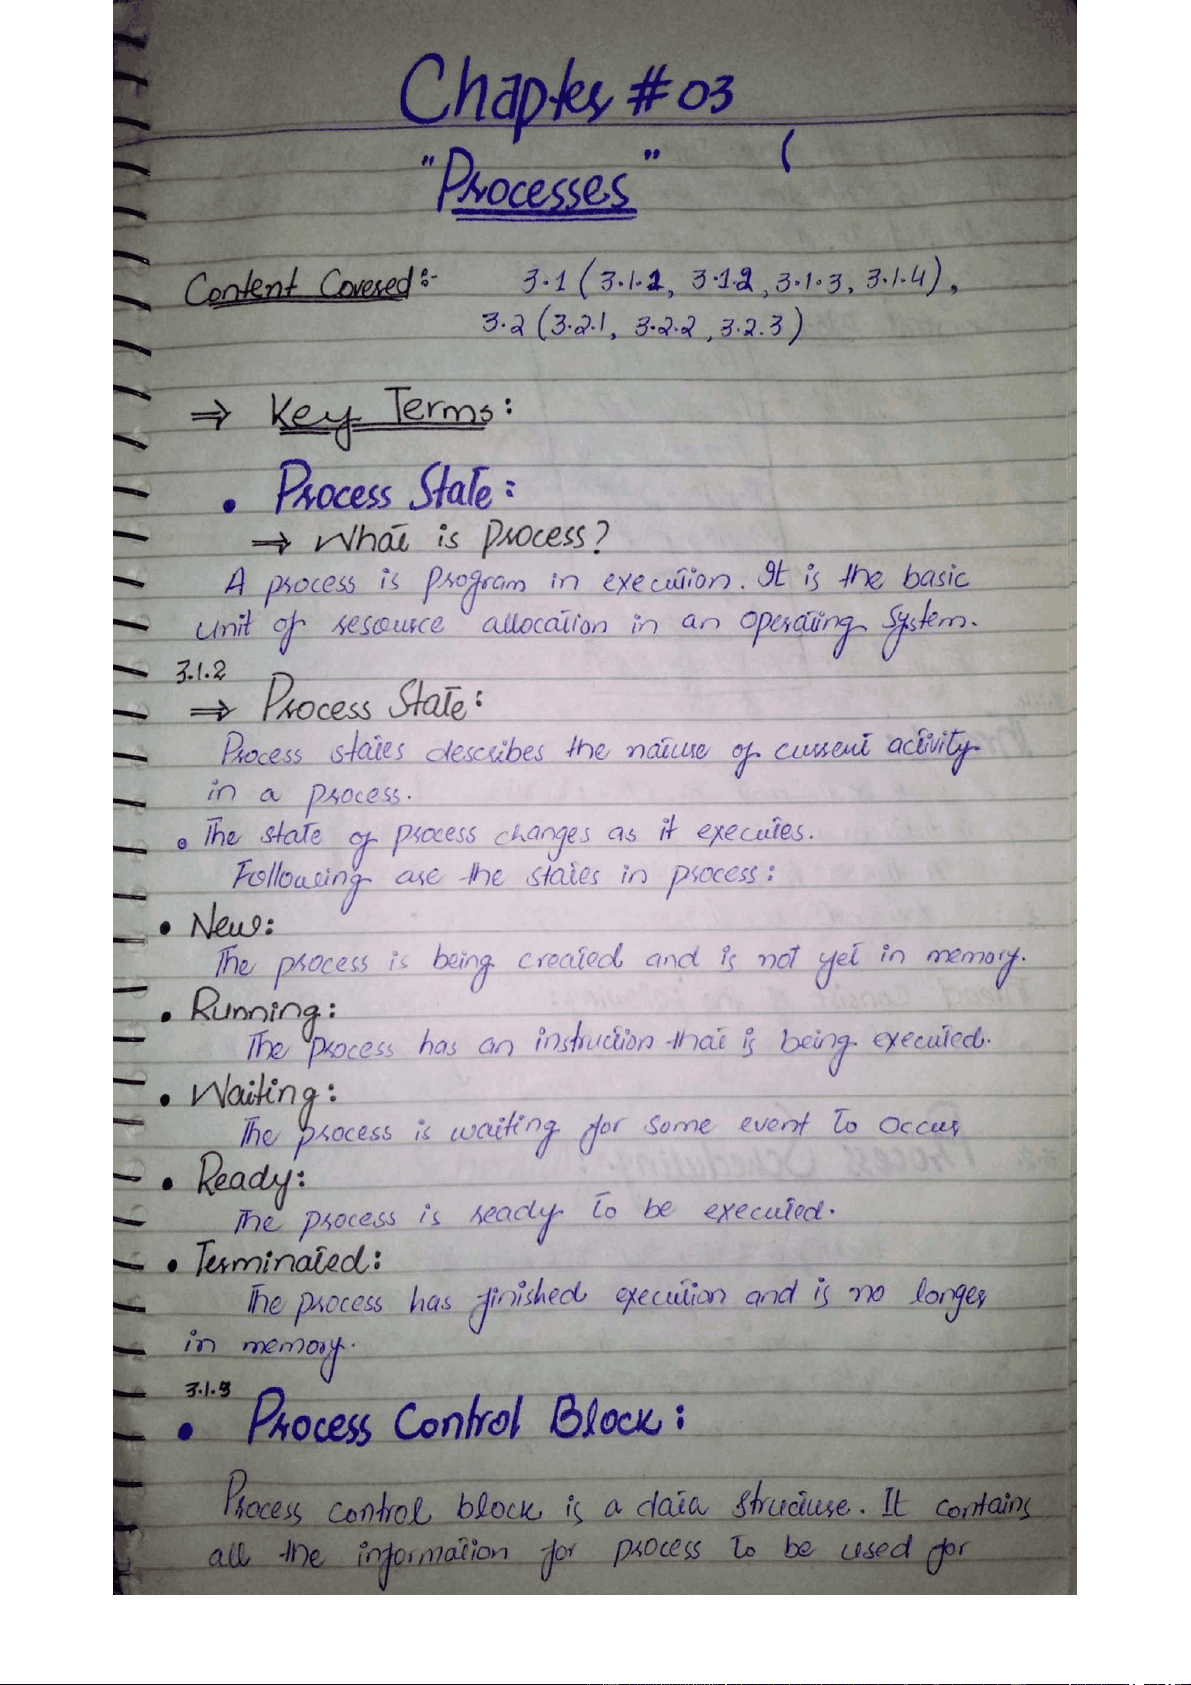 Chapter # 03
"Processes"
Content Covered:- 3.1 (3.1.1, 3.1.2, 3.1.3, 3.1.4),
3.2 (3.2.1, 3.2.2, 3.2.3)
⇒ Key Terms:
• Process State:
⇒ What is Process?
A process is Program in execution. It is the basic
unit of resource allocation in an Operating System.
3.1.2
⇒ Process State:
Process states describes the nature of current activity
in a process.
• The state of process changes as it executes.
Following are the states in process:
• New:
The process is being created and is not yet in memory.
• Running:
The process has an instruction that is being executed.
• Waiting:
The process is waiting for some event to occur
• Ready:
The process is ready to be executed.
• Terminated:
The process has finished execution and is no longer
in memory.
3.1.3
• Process Control Block:
Process control block is a data structure. It contains
all the information for process to be used for